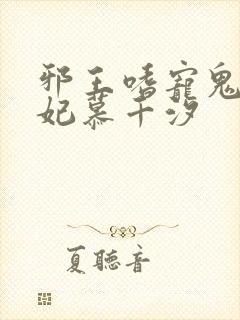 邪王嗜寵鬼
妃慕千汐
夏聽音